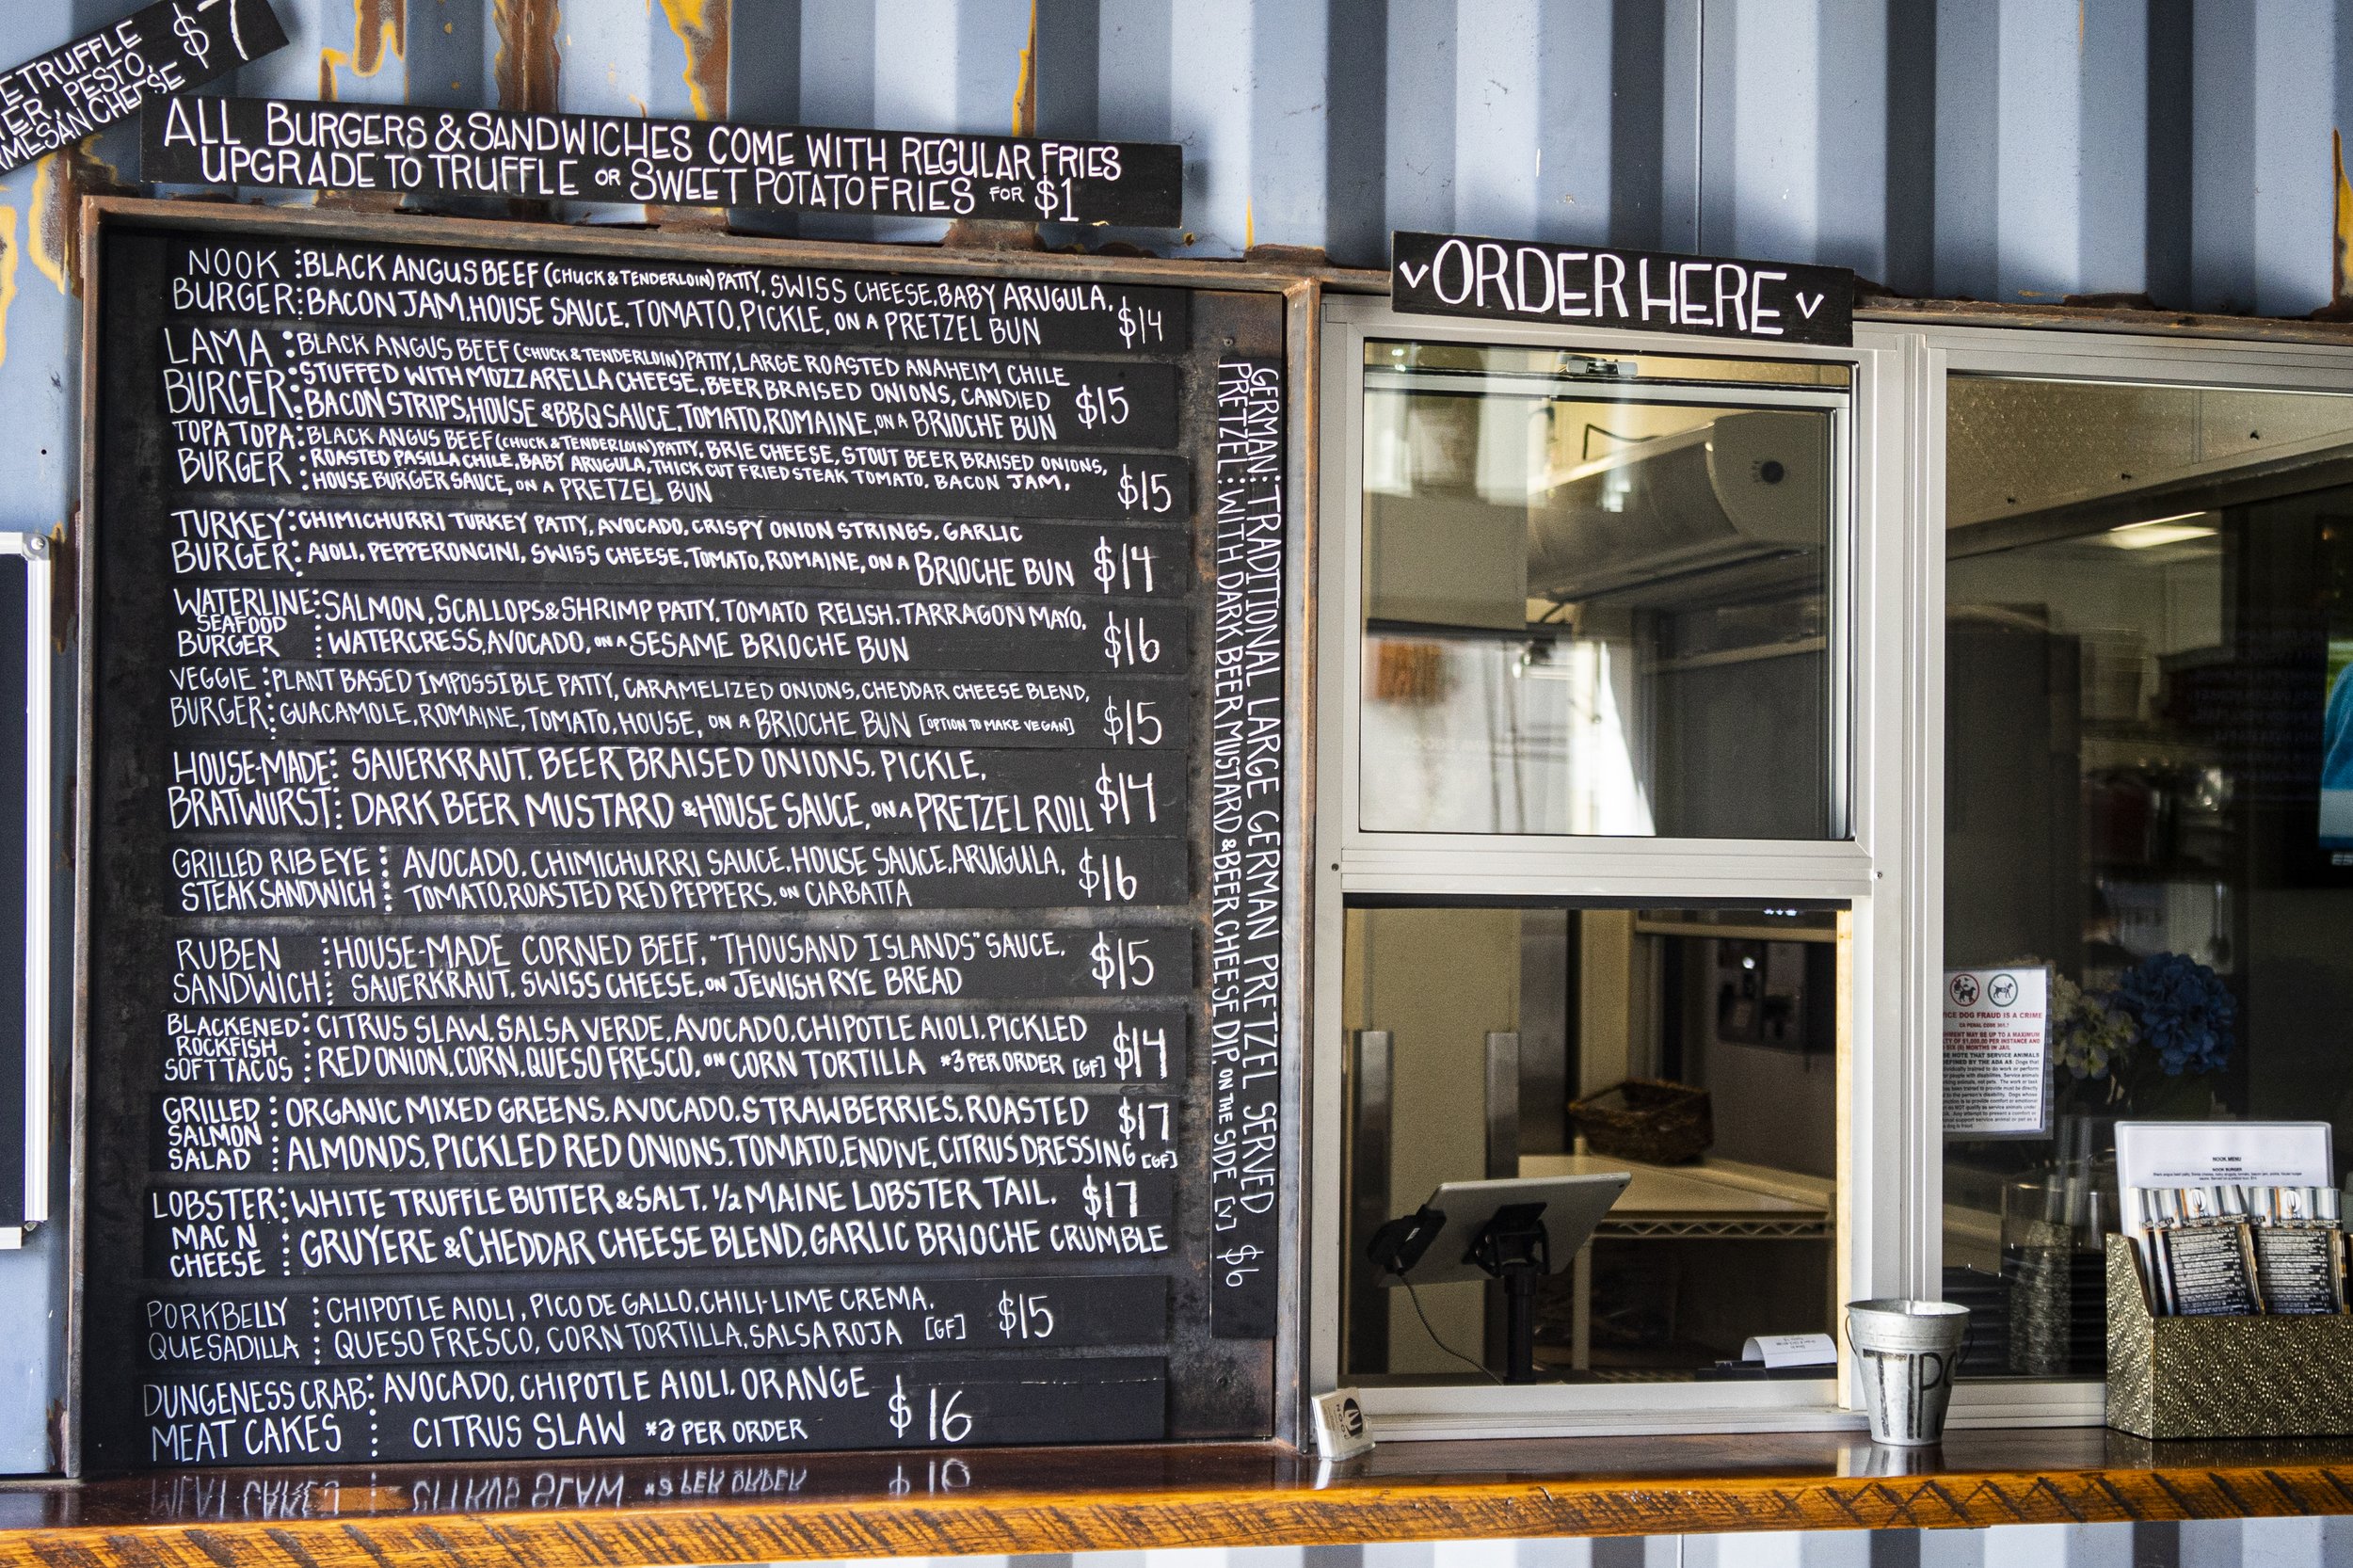 E TRUFFLE
TER, PESTO,
MESAN CHEESE
$7
ALL BURGERS & SANDWICHES COME WITH REGULAR FRIES
UPGRADE TO TRUFFLE OR SWEET POTATO FRIES FOR $1
NOOK BURGER: BLACK ANGUS BEEF (CHUCK & TENDERLOIN) PATTY, SWISS CHEESE, BABY ARUGULA,
BACON JAM, HOUSE SAUCE, TOMATO, PICKLE, ON A PRETZEL BUN $14
LAMA BURGER: BLACK ANGUS BEEF (CHUCK & TENDERLOIN) PATTY, LARGE ROASTED ANAHEIM CHILE
STUFFED WITH MOZZARELLA CHEESE, BEER BRAISED ONIONS, CANDIED
BACON STRIPS, HOUSE & BBQ SAUCE, TOMATO, ROMAINE, ON A BRIOCHE BUN $15
TOPA TOPA BURGER: BLACK ANGUS BEEF (CHUCK & TENDERLOIN) PATTY, BRIE CHEESE, STOUT BEER BRAISED ONIONS,
ROASTED PASILLA CHILE, BABY ARUGULA, THICK CUT FRIED STEAK TOMATO, BACON JAM,
HOUSE BURGER SAUCE, ON A PRETZEL BUN $15
TURKEY BURGER: CHIMICHURRI TURKEY PATTY, AVOCADO, CRISPY ONION STRINGS, GARLIC
AIOLI, PEPPERONCINI, SWISS CHEESE, TOMATO, ROMAINE, ON A BRIOCHE BUN $14
WATERLINE SEAFOOD BURGER: SALMON, SCALLOPS & SHRIMP PATTY, TOMATO RELISH, TARRAGON MAYO,
WATERCRESS, AVOCADO, ON A SESAME BRIOCHE BUN $16
VEGGIE BURGER: PLANT BASED IMPOSSIBLE PATTY, CARAMELIZED ONIONS, CHEDDAR CHEESE BLEND,
GUACAMOLE, ROMAINE, TOMATO, HOUSE, ON A BRIOCHE BUN [OPTION TO MAKE VEGAN] $15
HOUSE-MADE BRATWURST: SAUERKRAUT, BEER BRAISED ONIONS, PICKLE,
DARK BEER MUSTARD & HOUSE SAUCE, ON A PRETZEL ROLL $14
GRILLED RIB EYE STEAK SANDWICH: AVOCADO, CHIMICHURRI SAUCE, HOUSE SAUCE, ARUGULA,
TOMATO, ROASTED RED PEPPERS, ON CIABATTA $16
RUBEN SANDWICH: HOUSE-MADE CORNED BEEF, "THOUSAND ISLANDS" SAUCE,
SAUERKRAUT, SWISS CHEESE, ON JEWISH RYE BREAD $15
BLACKENED ROCKFISH SOFT TACOS: CITRUS SLAW, SALSA VERDE, AVOCADO, CHIPOTLE AIOLI, PICKLED
RED ONION, CORN, QUESO FRESCO, ON CORN TORTILLA *3 PER ORDER [GF] $14
GRILLED SALMON SALAD: ORGANIC MIXED GREENS, AVOCADO, STRAWBERRIES, ROASTED $17
ALMONDS, PICKLED RED ONIONS, TOMATO, ENDIVE, CITRUS DRESSING [GF]
LOBSTER MAC N CHEESE: WHITE TRUFFLE BUTTER & SALT, 1/2 MAINE LOBSTER TAIL, $17
GRUYERE & CHEDDAR CHEESE BLEND, GARLIC BRIOCHE CRUMBLE
PORKBELLY QUESADILLA: CHIPOTLE AIOLI, PICO DE GALLO, CHILI-LIME CREMA,
QUESO FRESCO, CORN TORTILLA, SALSA ROJA [GF] $15
DUNGENESS CRAB MEAT CAKES: AVOCADO, CHIPOTLE AIOLI, ORANGE
CITRUS SLAW *2 PER ORDER $16
GERMAN PRETZEL: TRADITIONAL LARGE GERMAN PRETZEL SERVED
WITH DARK BEER MUSTARD & BEER CHEESE DIP, ON THE SIDE [V] $6
ORDER HERE
ICE DOG FRAUD IS A CRIME
CA PENAL CODE 365.7
NOOK
TIPS
NOOK MENU
NOOK BURGER